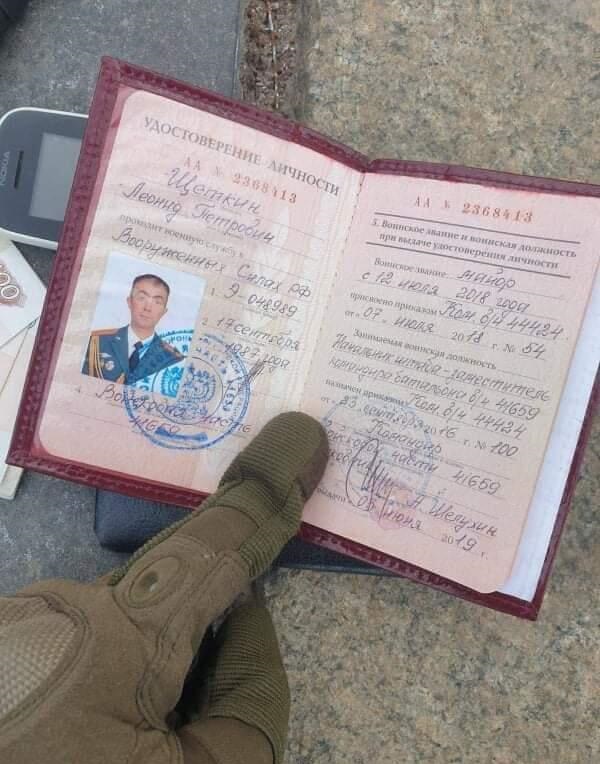 NOKIA
УДОСТОВЕРЕНИЕ ЛИЧНОСТИ
АА № 2368413
Щеткин
Леонид Петрович
проходит военную службу в
Вооруженных Силах РФ
1. Э-048989
2. 17 сентября
1987 года
4. Войсковая часть
41659
АА № 2368413
5. Воинское звание и воинская должность
при выдаче удостоверения личности
Воинское звание майор
с 12 июля 2018 года
присвоено приказом Ком. в/ч 44424
от "07" июля 2018 г. № 54
Занимаемая воинская должность
Начальник штаба-заместитель
командира батальона в/ч 41659
назначен приказом Ком. в/ч 44424
от "23" сентября 2016 г. № 100
Командир
части 41659
Л. Шелухин
выдачи "05" июня 2019 г.